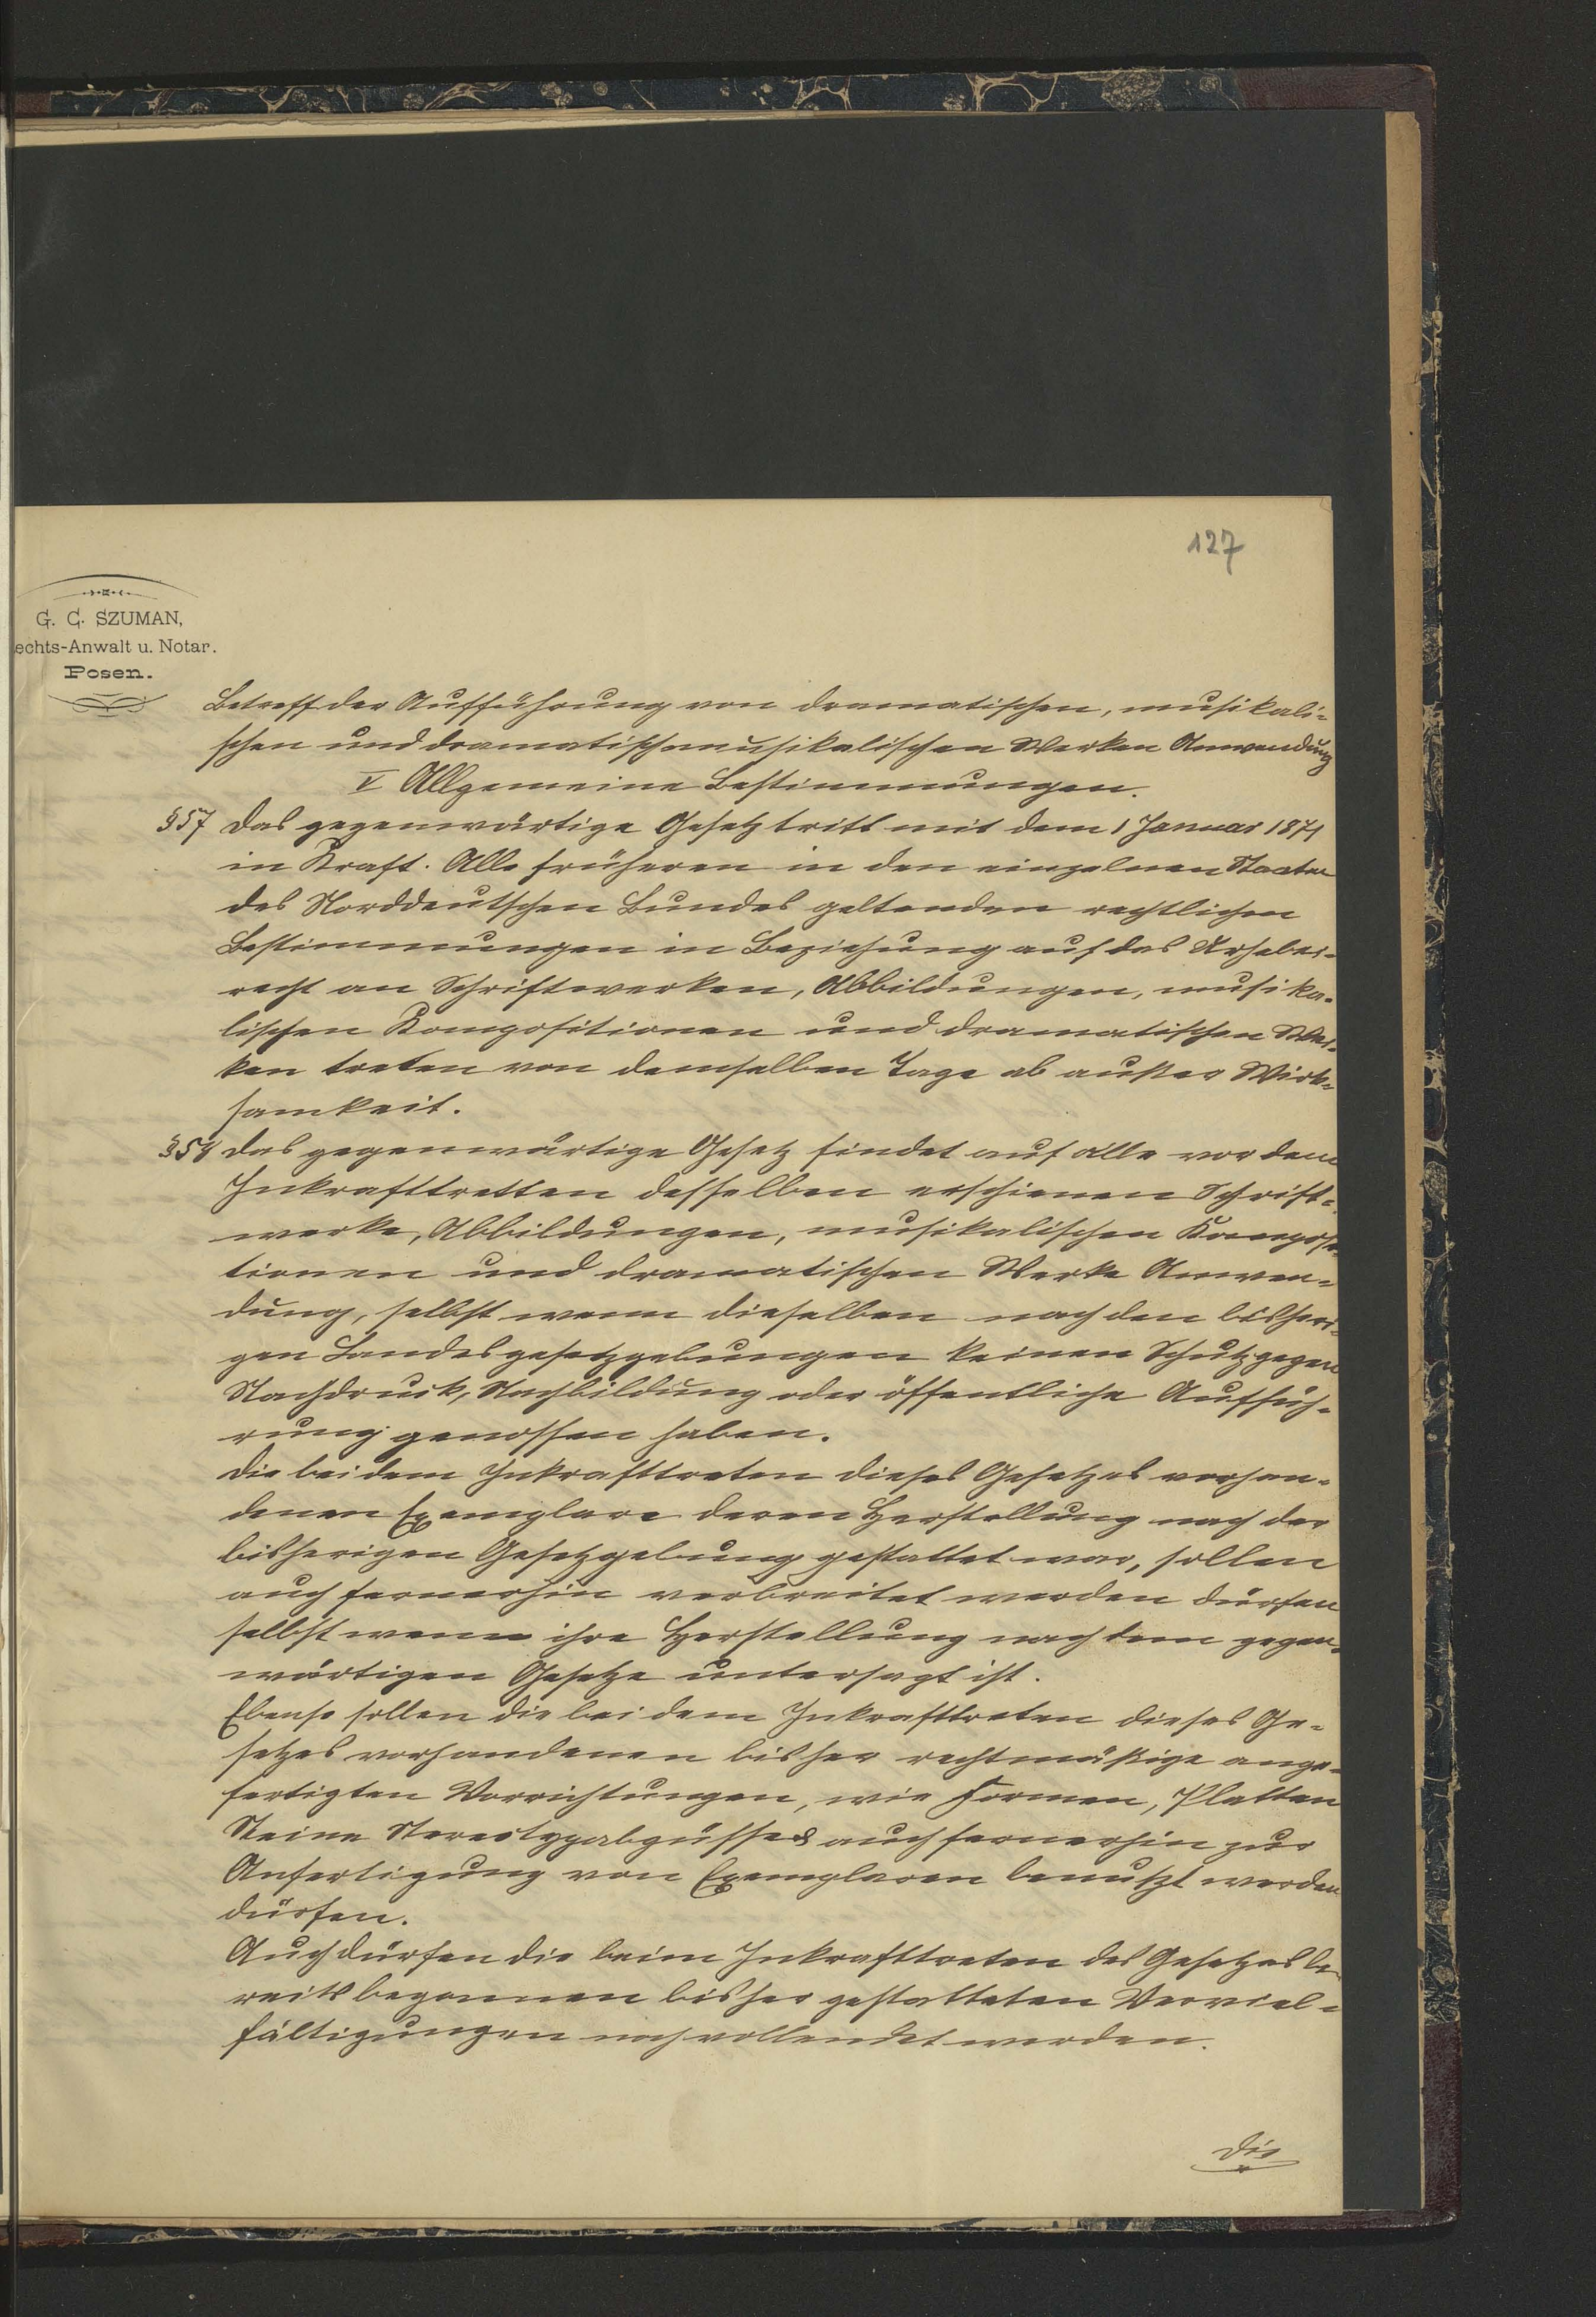 127
G. C. SZUMAN,
echts-Anwalt u. Notar.
Posen.
Betreff der Aufführung von dramatischen, musikali-
schen und dramatischmusikalischen Werken Anwendung
V Allgemeine Bestimmungen.
§57 Das gegenwärtige Gesetz tritt mit dem 1 Januar 1871
in Kraft. Alle früheren in den einzelnen Staaten
des Norddeutschen Bundes geltenden rechtlichen
Bestimmungen in Beziehung auf das Urheber-
recht an Schriftwerken, Abbildungen, musika-
lischen Kompositionen und dramatischen Wer-
ken treten von demselben Tage ab außer Wirk-
samkeit.
§58 Das gegenwärtige Gesetz findet auf alle vor dem
Inkrafttretten desselben erschienen Schrift-
werke, Abbildungen, musikalischen Komposi-
tionen und dramatischen Werke Anwen-
dung, selbst wenn dieselben nach den bisheri-
gen Landesgesetzgebungen keinen Schutz gegen
Nachdruck, Nachbildung oder öffentliche Auffüh-
rung genossen haben.
Die bei dem Inkrafttreten dieses Gesetzes vorhan-
denen Exemplare deren Herstellung nach der
bisherigen Gesetzgebung gestattet war, sollen
auch fernerhin verbreitet werden dürfen
selbst wenn ihre Herstellung nach dem gegen-
wärtigen Gesetze untersagt ist.
Ebenso sollen die bei dem Inkrafttreten dieses Ge-
setzes vorhandenen bisher rechtmäßige ange-
fertigten Vorrichtungen, wie Formen, Platten
Steine Stereotypabgüsse auch fernerhin zur
Anfertigung von Exemplaren benutzt werden
dürfen.
Auch dürfen die beim Inkrafttreten des Gesetzes be-
reits begonnen bisher gestatteten Verviel-
fältigungen noch vollendet werden.
Die